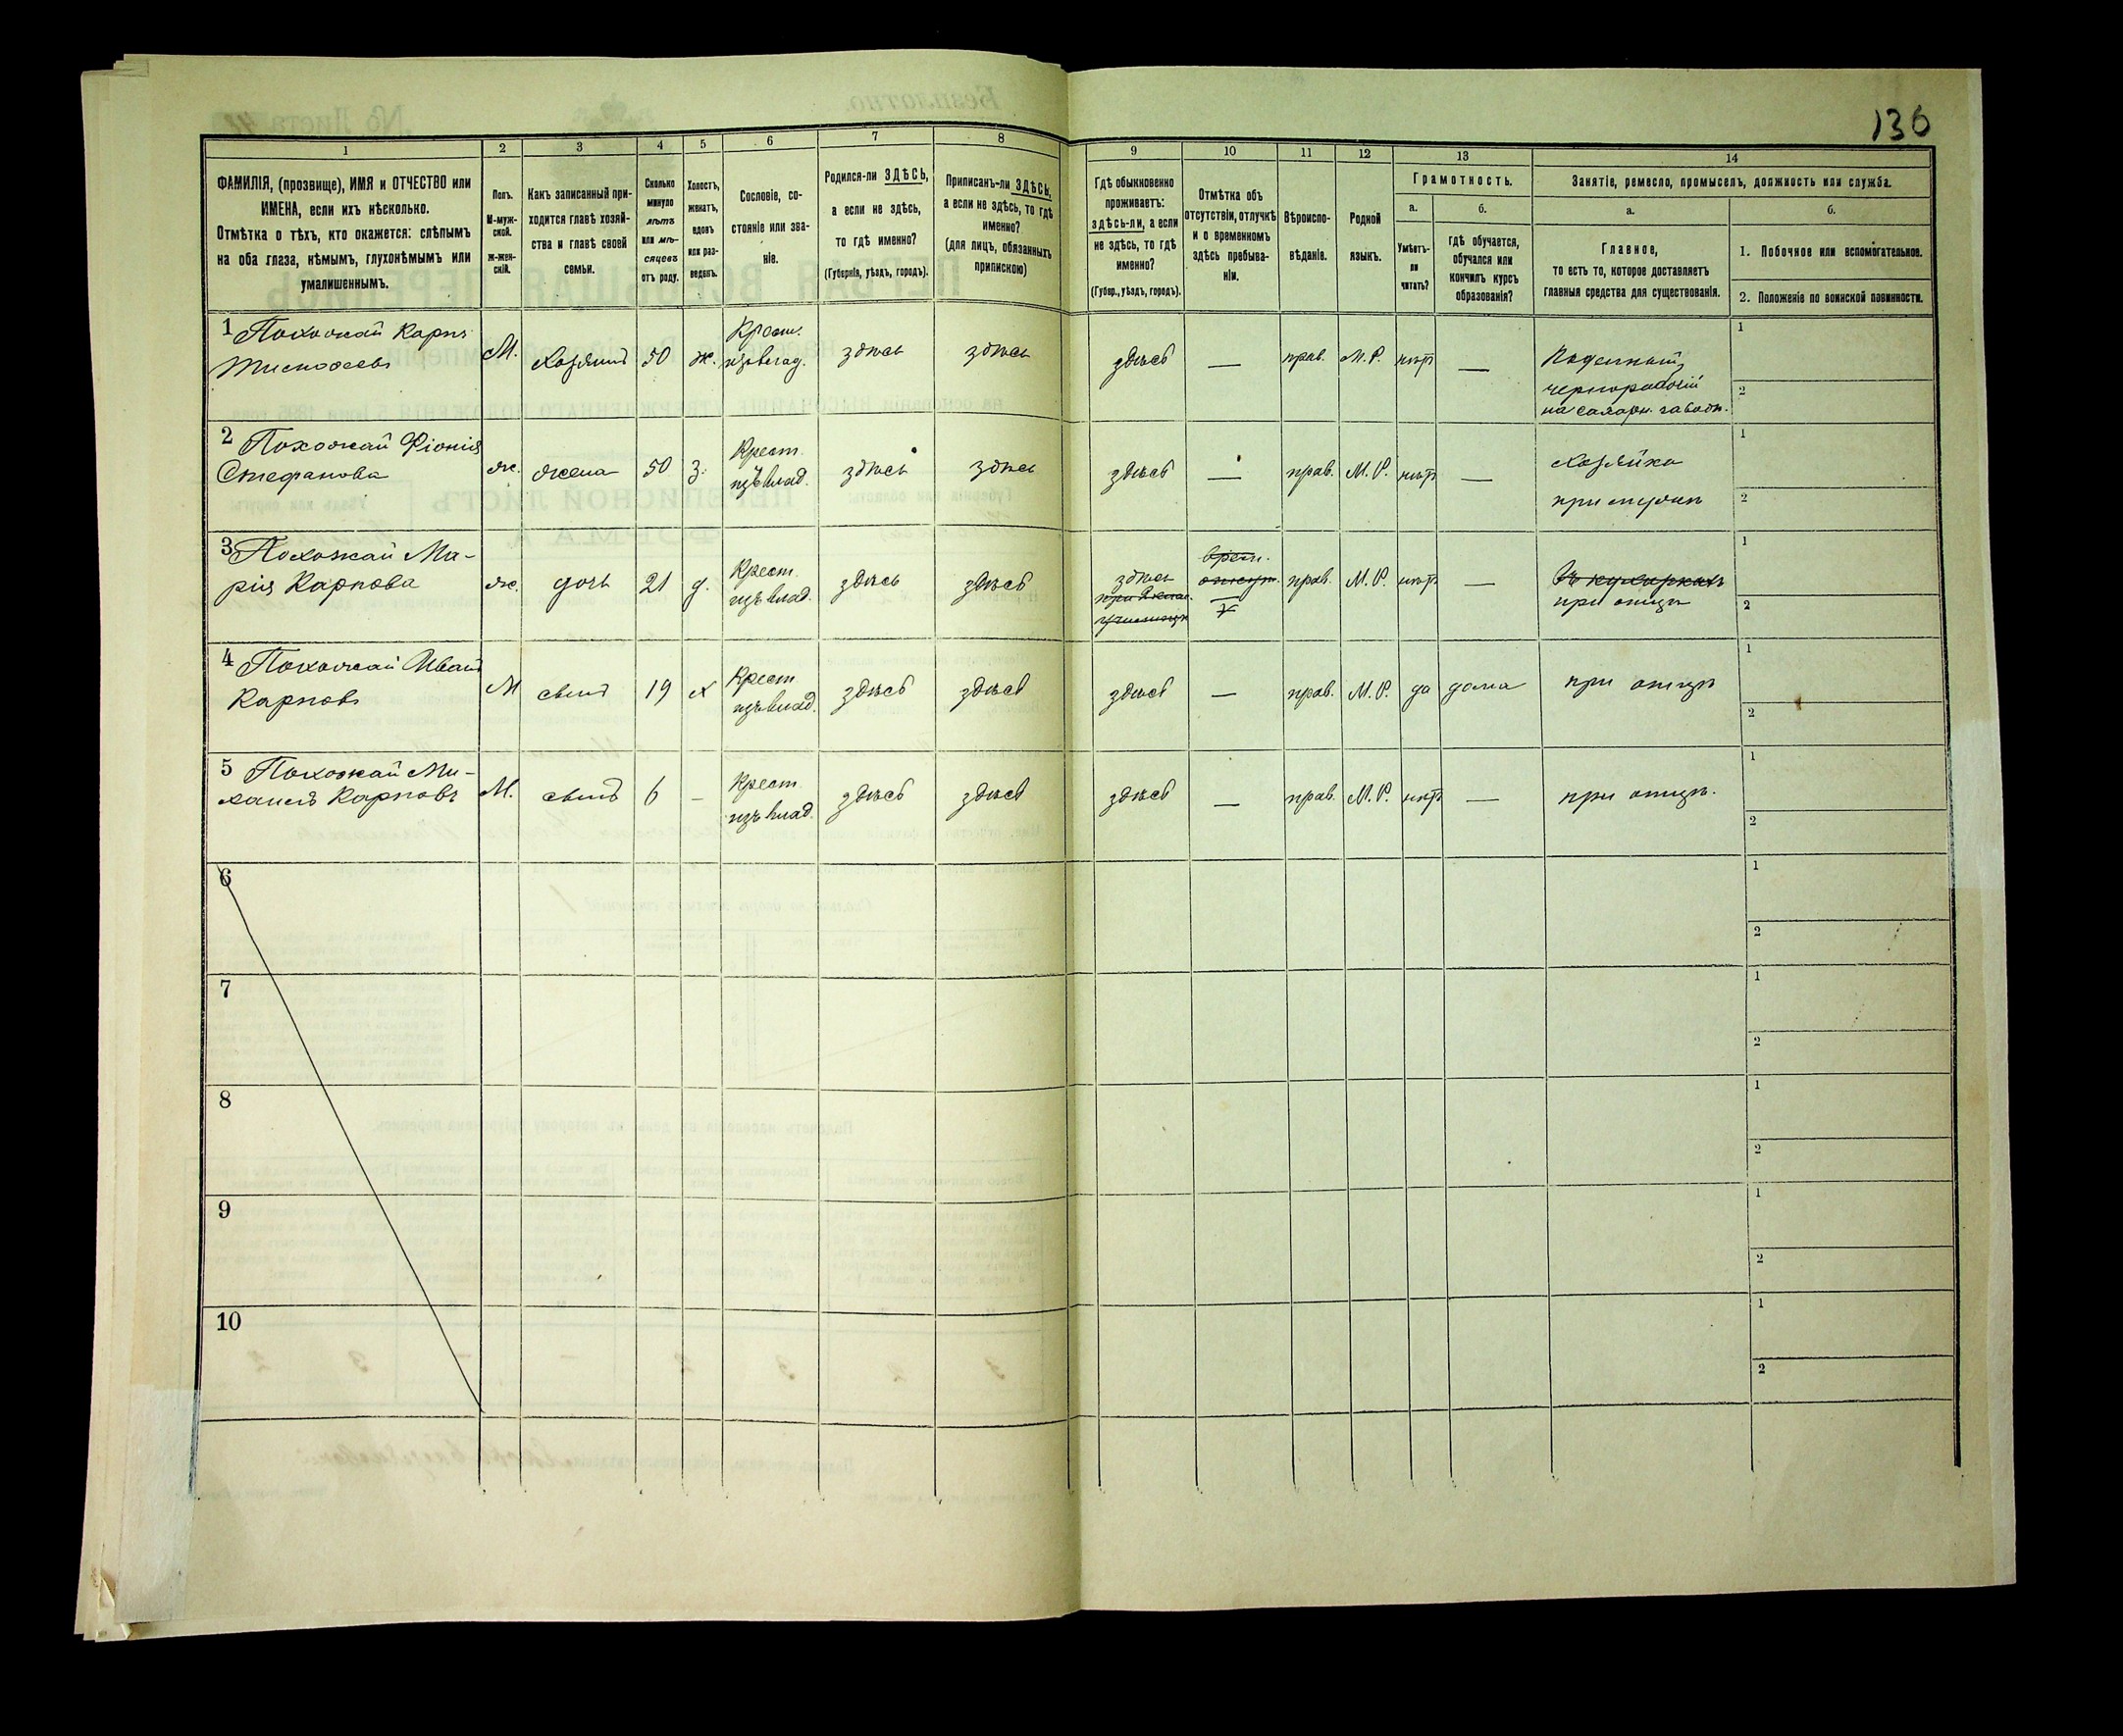 136
1 2 3 4 5 6 7 8 9 10 11 12 13 14
ФАМИЛІЯ, (прозвище), ИМЯ и ОТЧЕСТВО или
ИМЕНА, если ихъ нѣсколько.
Отмѣтка о тѣхъ, кто окажется: слѣпымъ
на оба глаза, нѣмымъ, глухонѣмымъ или
умалишеннымъ.
Полъ.
М-муж-
ской.
ж-жен-
скій.
Какъ записанный при-
ходится главѣ хозяй-
ства и главѣ своей
семьи.
Сколько
минуло
лѣтъ
или мѣ-
сяцевъ
отъ роду.
Холостъ,
женатъ,
вдовъ
или раз-
веденъ.
Сословіе, со-
стояніе или зва-
ніе.
Родился-ли ЗДѢСЬ,
а если не здѣсь,
то гдѣ именно?
(Губернія, уѣздъ, городъ).
Приписанъ-ли ЗДѢСЬ,
а если не здѣсь, то гдѣ
именно?
(для лицъ, обязанныхъ
припискою)
Гдѣ обыкновенно
проживаетъ:
здѣсь-ли, а если
не здѣсь, то гдѣ
именно?
(Губер., уѣздъ, городъ).
Отмѣтка объ
отсутствіи, отлучкѣ
и о временномъ
здѣсь пребыва-
ніи.
Вѣроиспо-
вѣданіе.
Родной
языкъ.
Грамотность.
а.
Умѣетъ-
ли
читать?
б.
Гдѣ обучается,
обучался или
кончилъ курсъ
образованія?
Занятіе, ремесло, промыселъ, должность или служба.
а.
Главное,
то есть то, которое доставляетъ
главныя средства для существованія.
б.
1. Побочное или вспомогательное.
2. Положеніе по воинской повинности.
1 Похожай Карпъ
М. Хозяинъ 50 ж. Крест. изъ влад. здѣсь здѣсь здѣсь — прав. М.Р. нѣтъ —
чернорабочій
на сахарн. заводѣ.
1
2
2 Похожай Фіонія
Стефанова
ж. жена 50 з. Крест. изъ влад. здѣсь здѣсь здѣсь — прав. М.Р. нѣтъ —
Хозяйка
при мужѣ
1
2
3 Похожай Ма-
рія Карпова
ж. дочь 21 д. Крест. изъ влад. здѣсь здѣсь здѣсь — прав. М.Р. нѣтъ —
при отцѣ
1
2
4 Похожай Иванъ
Карповъ
М сынъ 19 х Крест изъ влад. здѣсь здѣсь здѣсь — прав. М.Р. да дома при отцѣ
1
2
5 Похожай Ми-
хаилъ Карповъ
М. сынъ 6 — Крест. изъ влад. здѣсь здѣсь здѣсь — прав. М.Р. нѣтъ — при отцѣ.
1
2
6
1
2
7
1
2
8
1
2
9
1
2
10
1
2